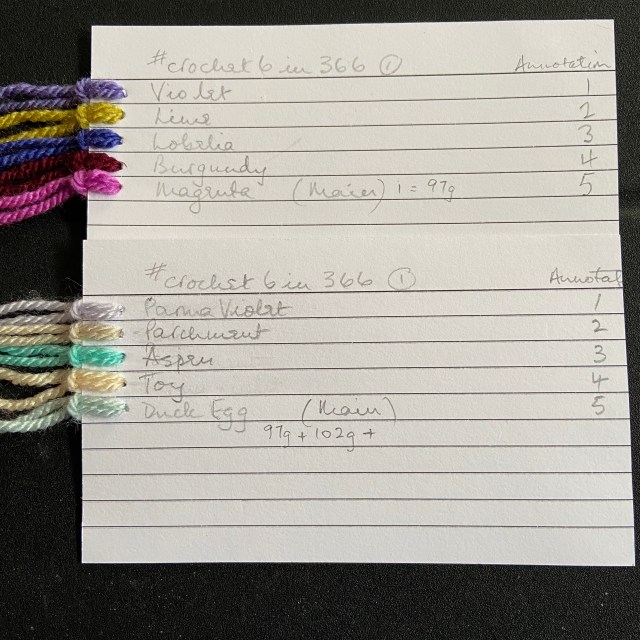 #crochet 6 in 366 ① Annotation
Violet 1
Lime 2
Lobelia 3
Burgundy 4
Magenta (Main) 1 = 97g 5
#crochet 6 in 366 ① Annotat
Parma Violet 1
Parchment 2
Aspen 3
Toy 4
Duck Egg (Main) 5
97g + 102g +